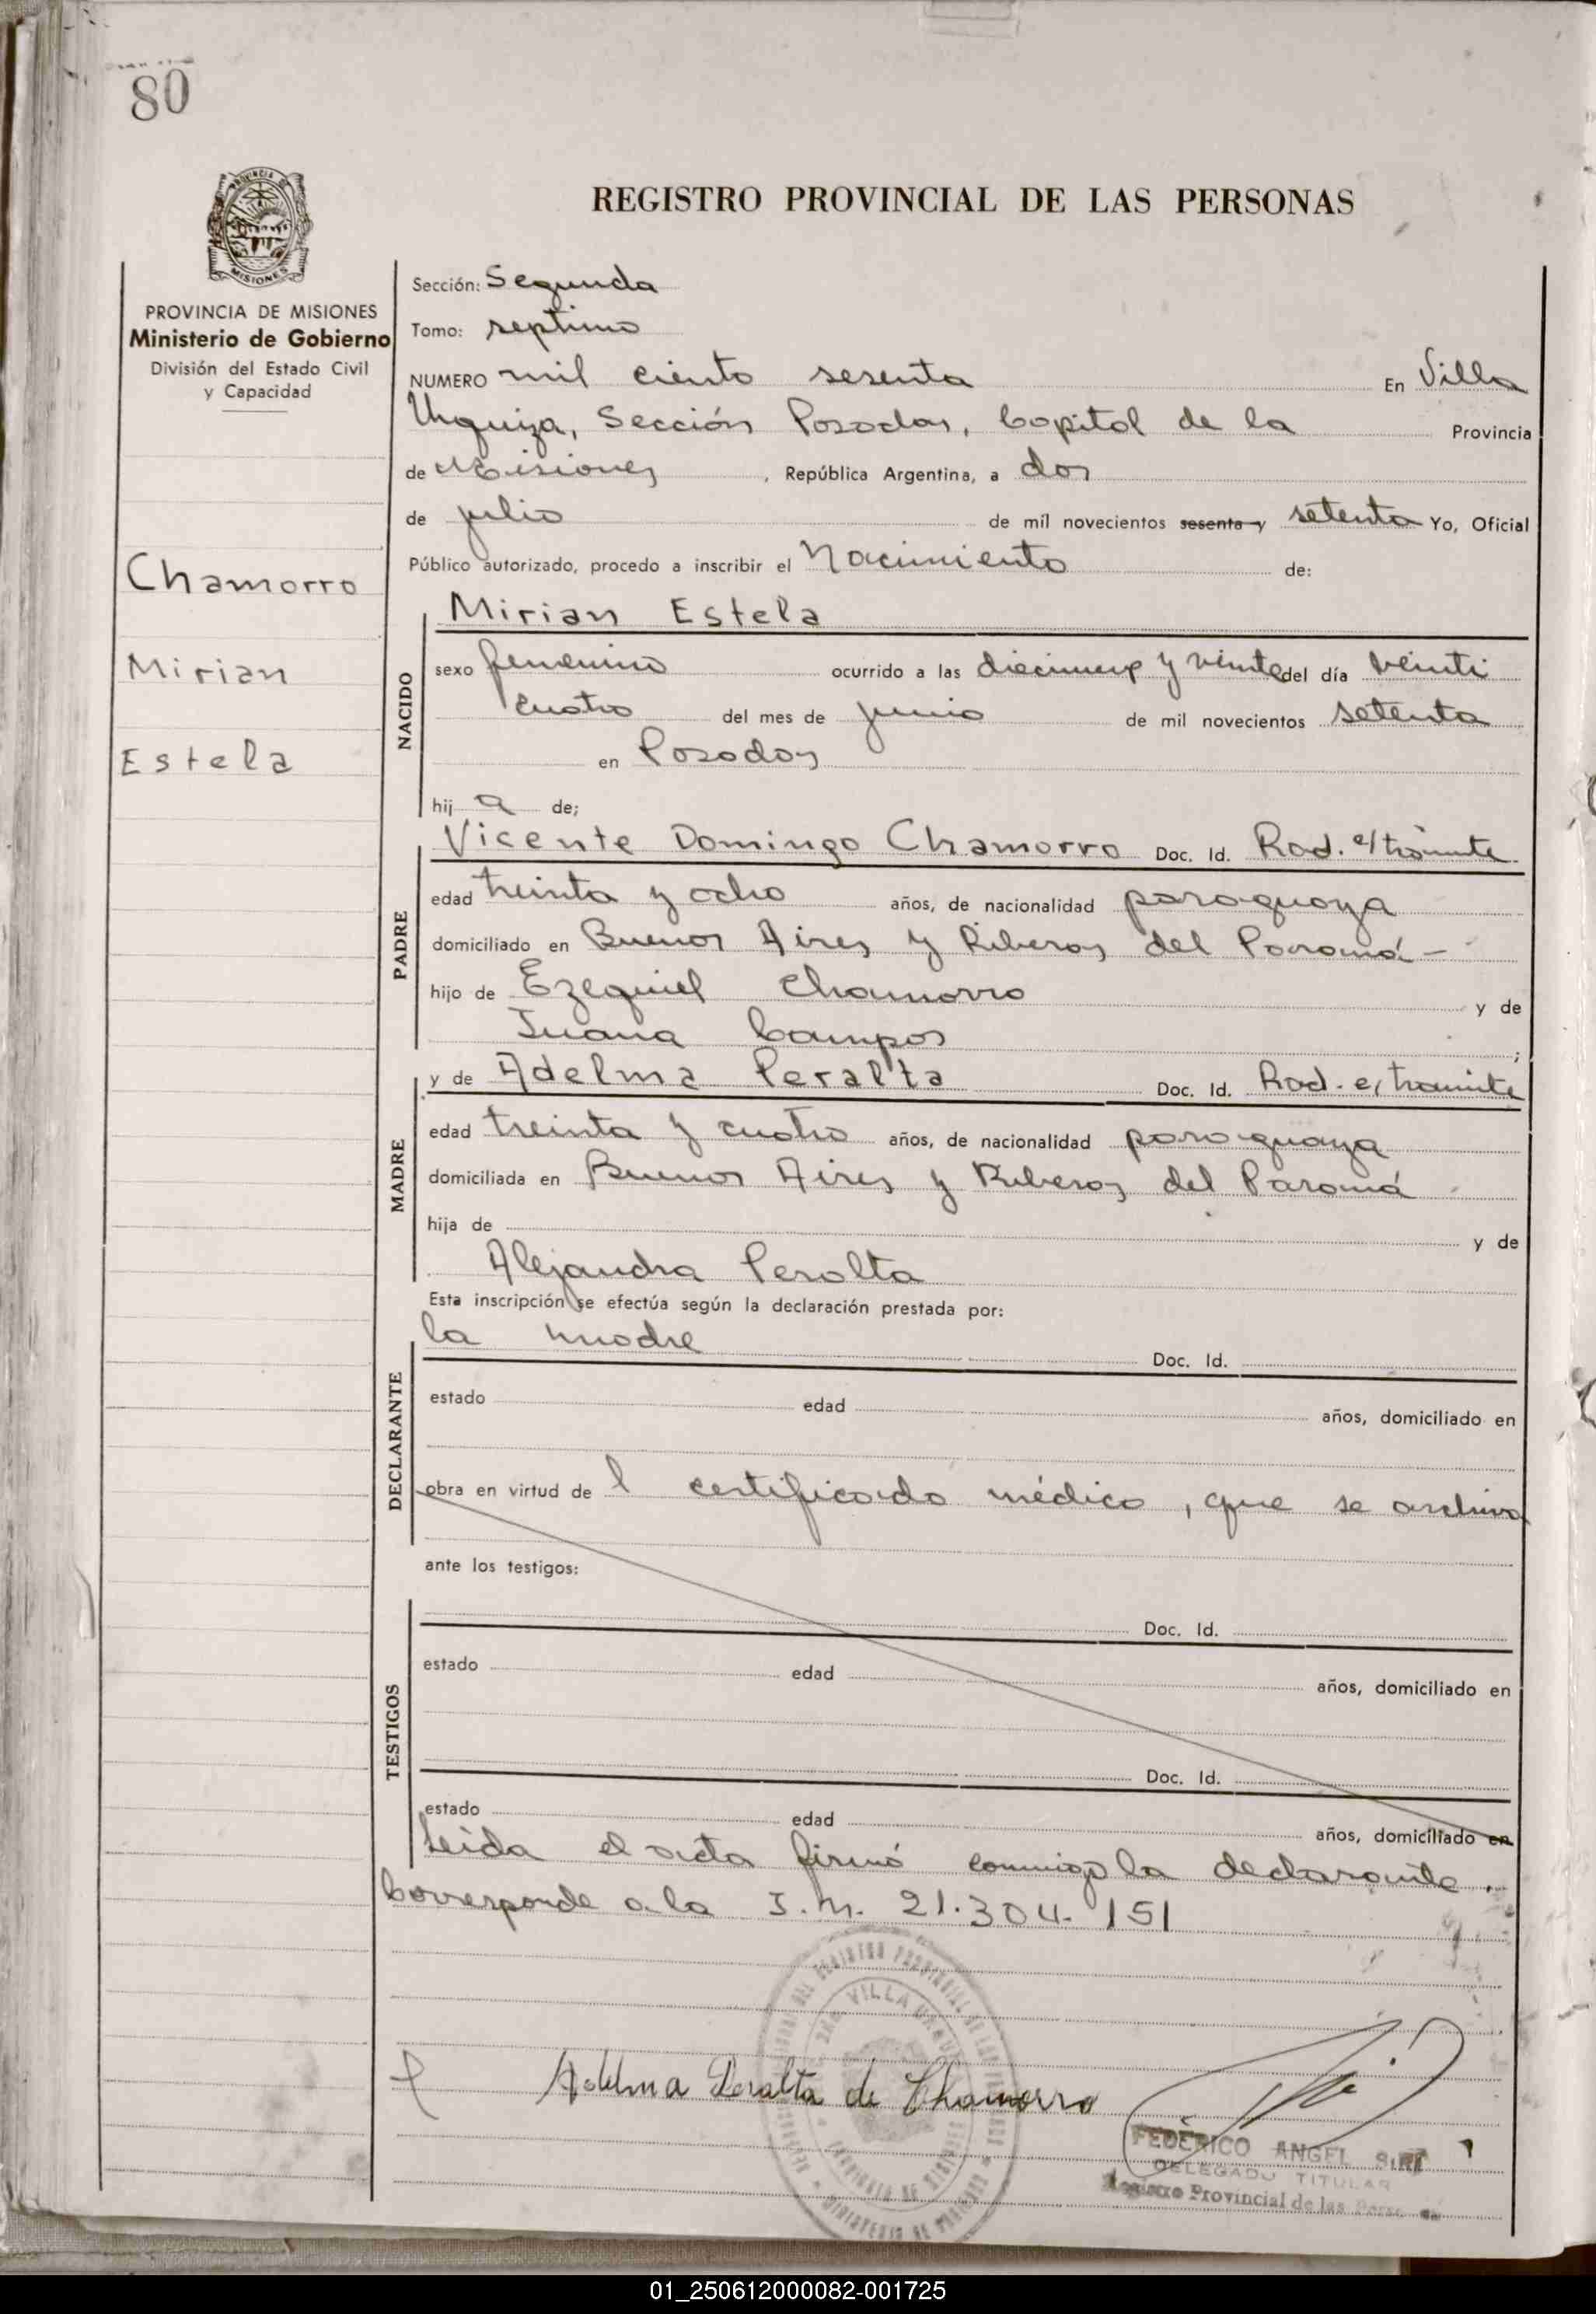 80
PROVINCIA DE
MISIONES
REGISTRO PROVINCIAL DE LAS PERSONAS
PROVINCIA DE MISIONES
Ministerio de Gobierno
División del Estado Civil
y Capacidad
Chamorro
Mirian
Estela
Sección: Segunda
Tomo: septimo
NUMERO mil ciento sesenta En Villa
Urquiza, Sección Posadas, Capital de la Provincia
de Misiones, República Argentina, a dos
de julio de mil novecientos sesenta y setenta Yo, Oficial
Público autorizado, procedo a inscribir el Nacimiento de:
NACIDO
Mirian Estela
sexo femenino ocurrido a las diecinueve y veinte del día veinti
cuatro del mes de junio de mil novecientos setenta
en Posadas
hij a de;
PADRE
Vicente Domingo Chamorro Doc. Id. Rad. e/tramite
edad treinta y ocho años, de nacionalidad paraguaya
domiciliado en Buenos Aires y Riberas del Paraná -
hijo de Ezequiel Chamorro y de
Juana Campos ;
MADRE
y de Adelma Peralta Doc. Id. Rad. e/tramite
edad treinta y cuatro años, de nacionalidad paraguaya
domiciliada en Buenos Aires y Riberas del Paraná
hija de y de
Alejandra Peralta
Esta inscripción se efectúa según la declaración prestada por:
DECLARANTE
la madre Doc. Id.
estado edad años, domiciliado en
obra en virtud de l certificado médico, que se archiva
ante los testigos:
TESTIGOS
Doc. Id.
estado edad años, domiciliado en
Doc. Id.
estado edad años, domiciliado en
Leida el acta firmó conmigo la declarante.
Corresponde a la I.M. 21.304.151
VILLA URQUIZA
Adelma Peralta de Chamorro
FEDERICO ANGEL
DELEGADO TITULAR
Registro Provincial de las
01_250612000082-001725